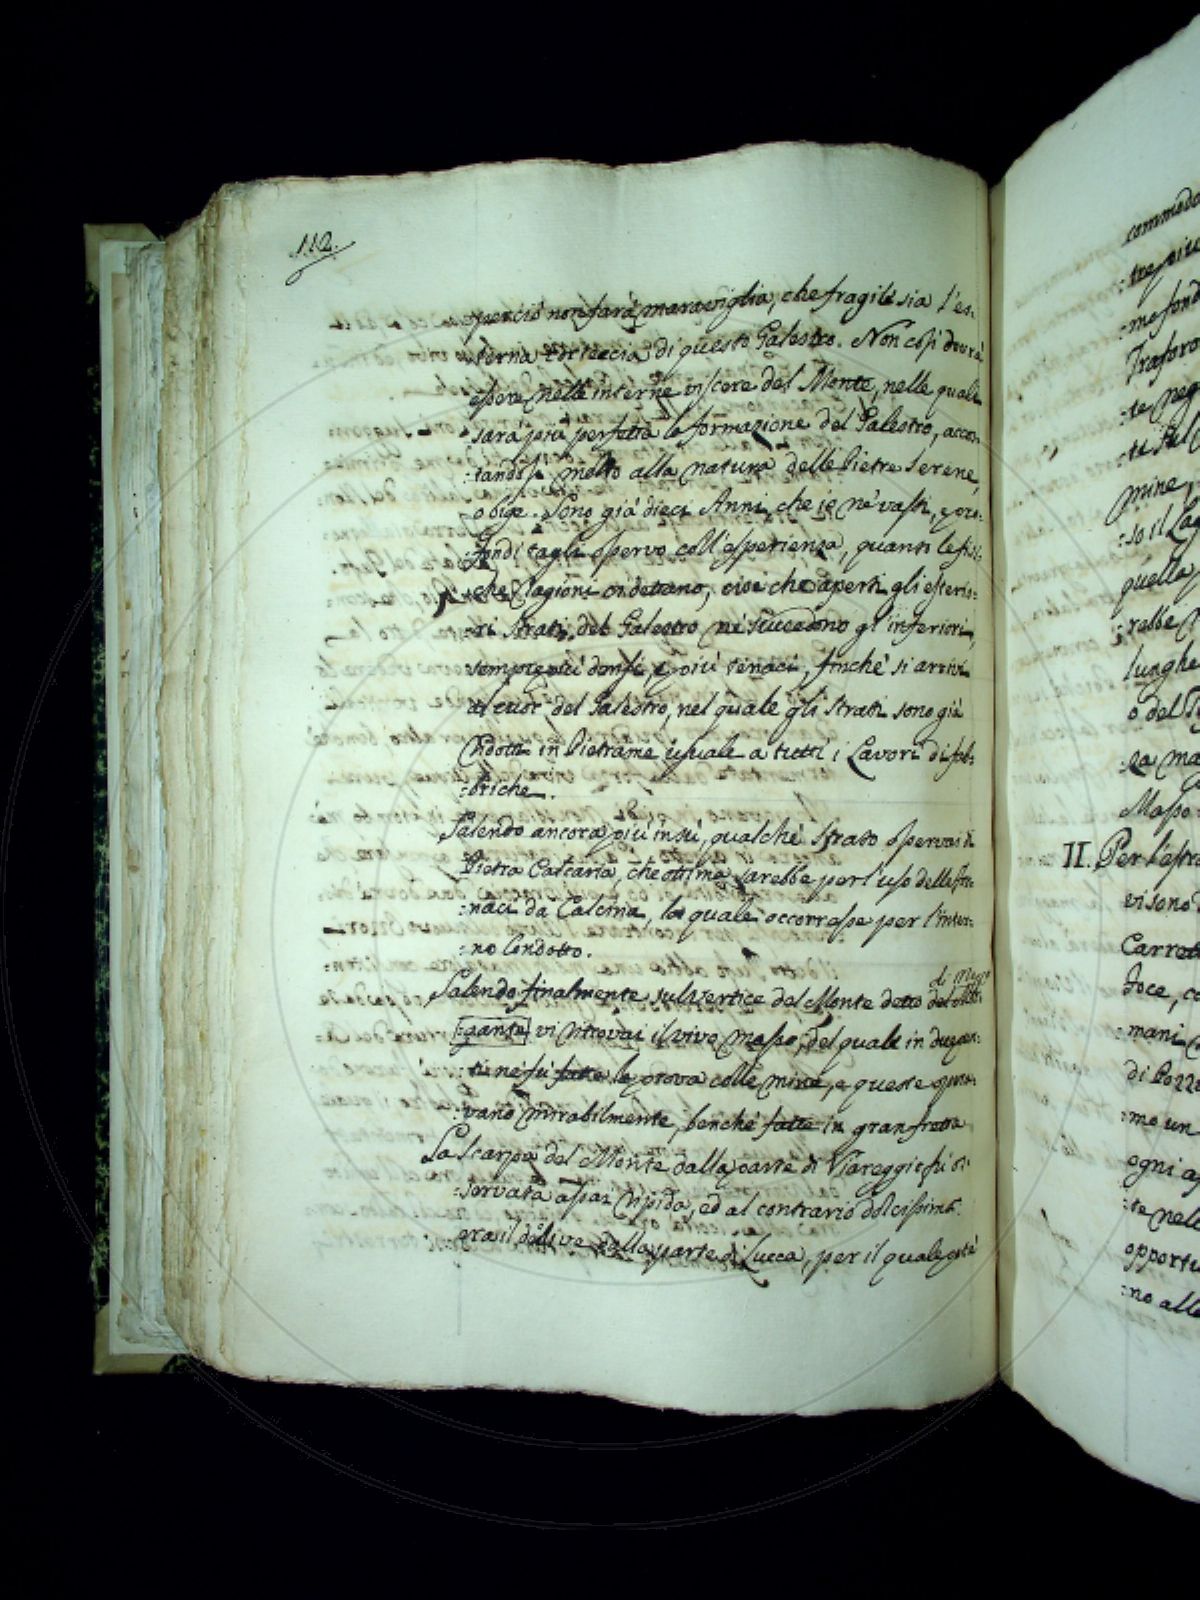 112.
perciò non farà maraviglia, che fragile sia l'es-
terna corteccia di questo Galestro. Non così dovrà
essere nelle interne viscere del Monte, nelle quali
sarà più perfetta la formazione del Galestro, accos-
tandosi molto alla natura delle Pietre Serene,
o bige. Sono già dieci Anni, che io né vasti, e pro-
:fondi tagli osservo coll'esperienza, quanto le fisi:
:che Ragioni ci dettano, cioè che aperti gli esterio:
:ri Strati del Galestro né succedono gl'inferiori,
sempre più densi, e più tenaci, finché si arrivi
al cuor del Galestro, nel quale gli Strati sono già
ridotti in Pietrame uguale a tutti i Lavori di fab-
:briche.
Salendo ancora più in sù, qualche Strato osservai di
Pietra Calcaria, che ottima sarebbe per l'uso delle for-
:naci da Calcina, la quale occorresse per l'inter-
:no Condotto.
di
Salendo finalmente sul Vertice del Monte detto del
:gante vi ritrovai il vivo masso, del quale in dugen:
:ti né fù fatte le prova colle mine, e queste opera:
:vano mirabilmente, benché fatte in gran fretta
La Scarpa del Monte dalla parte di Viareggio fù os:
:servata assai ripida, ed al contrario dolcissima
era il declive dalla parte di Lucca, per il quale
commodo
:tre più
:me fond
Traforo
:te neg
mine,
:so il Lag
quella
:rebbe
lunghe
o del
:za ma
Masso
II. Per l'estra
vi sono
Carrett
foce, co
:mani
di Pozz
:mo un
ogni
:te nell
opportu
:no alle